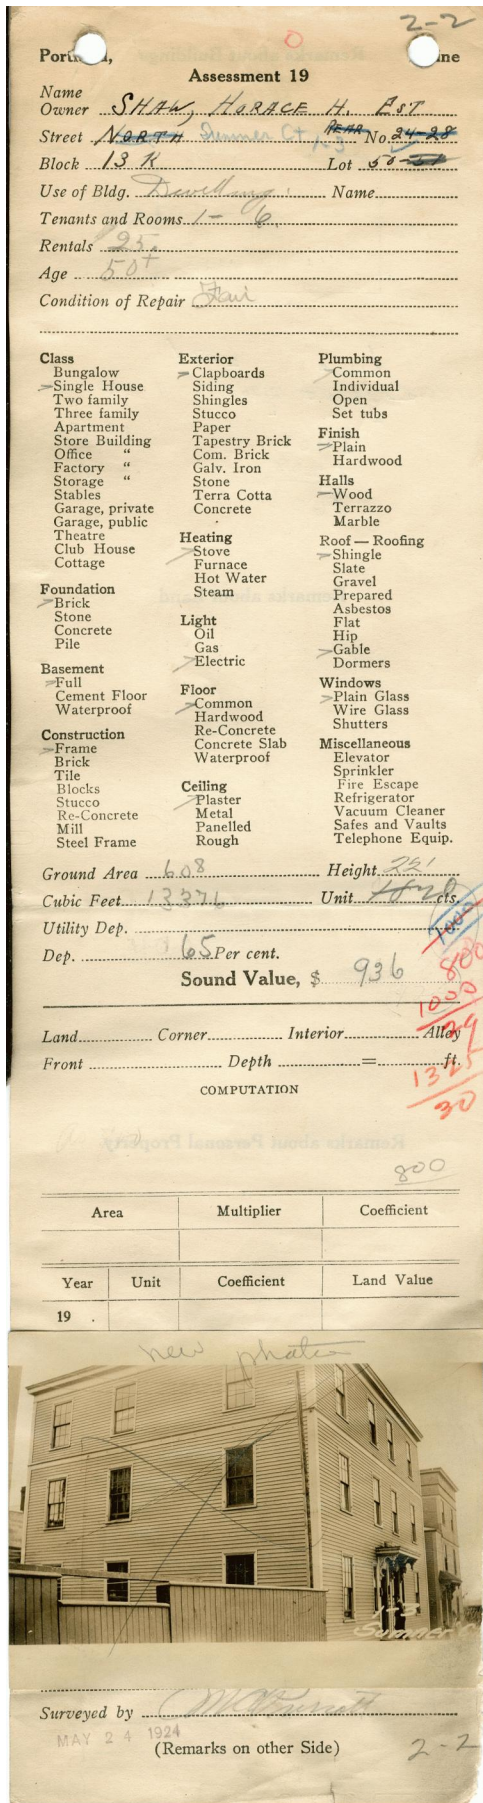 2-2
Portland, Maine
Assessment 19
Name
Owner SHAW, HORACE H. EST
Street NORTH Sumner Ct 1-3 REAR No. 24-28
Block 13 K Lot 50-51
Use of Bldg. Dwelling Name
Tenants and Rooms 1- 6
Rentals 25.
Age 50+
Condition of Repair Fair
Class
Bungalow
Single House
Two family
Three family
Apartment
Store Building
Office "
Factory "
Storage "
Stables
Garage, private
Garage, public
Theatre
Club House
Cottage
Foundation
Brick
Stone
Concrete
Pile
Basement
Full
Cement Floor
Waterproof
Construction
Frame
Brick
Tile
Blocks
Stucco
Re-Concrete
Mill
Steel Frame
Exterior
Clapboards
Siding
Shingles
Stucco
Paper
Tapestry Brick
Com. Brick
Galv. Iron
Stone
Terra Cotta
Concrete
Heating
Stove
Furnace
Hot Water
Steam
Light
Oil
Gas
Electric
Floor
Common
Hardwood
Re-Concrete
Concrete Slab
Waterproof
Ceiling
Plaster
Metal
Panelled
Rough
Plumbing
Common
Individual
Open
Set tubs
Finish
Plain
Hardwood
Halls
Wood
Terrazzo
Marble
Roof—Roofing
Shingle
Slate
Gravel
Prepared
Asbestos
Flat
Hip
Gable
Dormers
Windows
Plain Glass
Wire Glass
Shutters
Miscellaneous
Elevator
Sprinkler
Fire Escape
Refrigerator
Vacuum Cleaner
Safes and Vaults
Telephone Equip.
Ground Area 608 Height 22'
Cubic Feet 13376 Unit cts.
Utility Dep. 1000
Dep. 65 Per cent. 800
Sound Value, $ 936
1000
29
Land Corner Interior Alley
Front Depth = ft.
1325
30
COMPUTATION
800
Area Multiplier Coefficient
Year Unit Coefficient Land Value
19 .
new photo
1-3
Sumner Ct
Surveyed by
MAY 24 1924
(Remarks on other Side)
2-2